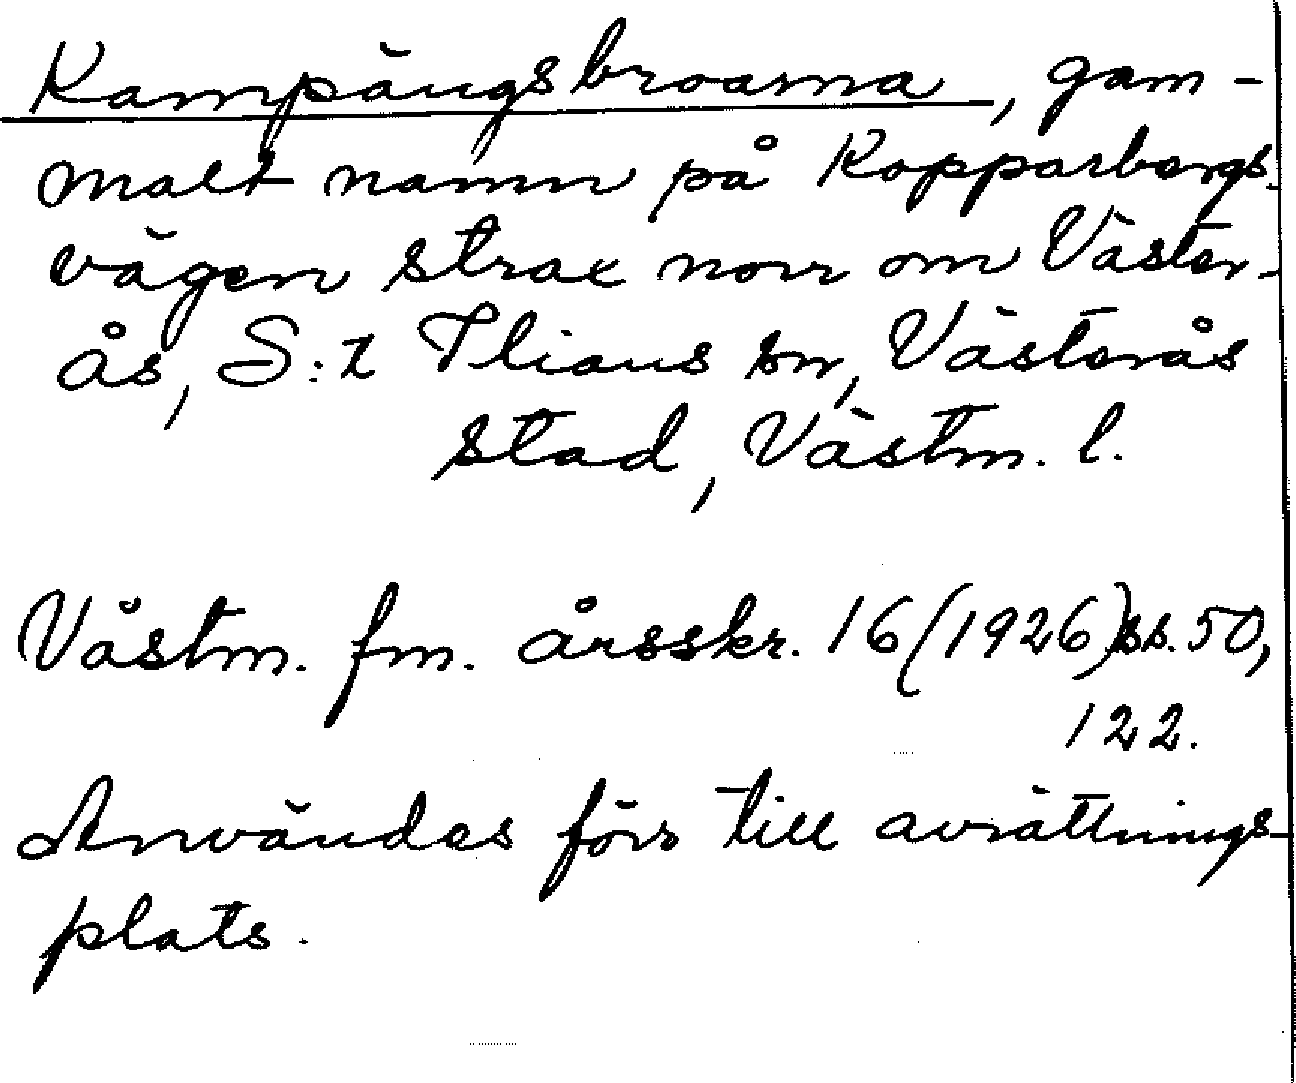 Kampängsbroarna, gam-
malt namn på Kopparbergs-
vägen strax norr om Väster-
ås, S:t Ilians sn, Västerås
stad, Västm. l.
Västm. fm. årsskr. 16 (1926) ss. 50,
122.
Användes förr till avrättnings-
plats.